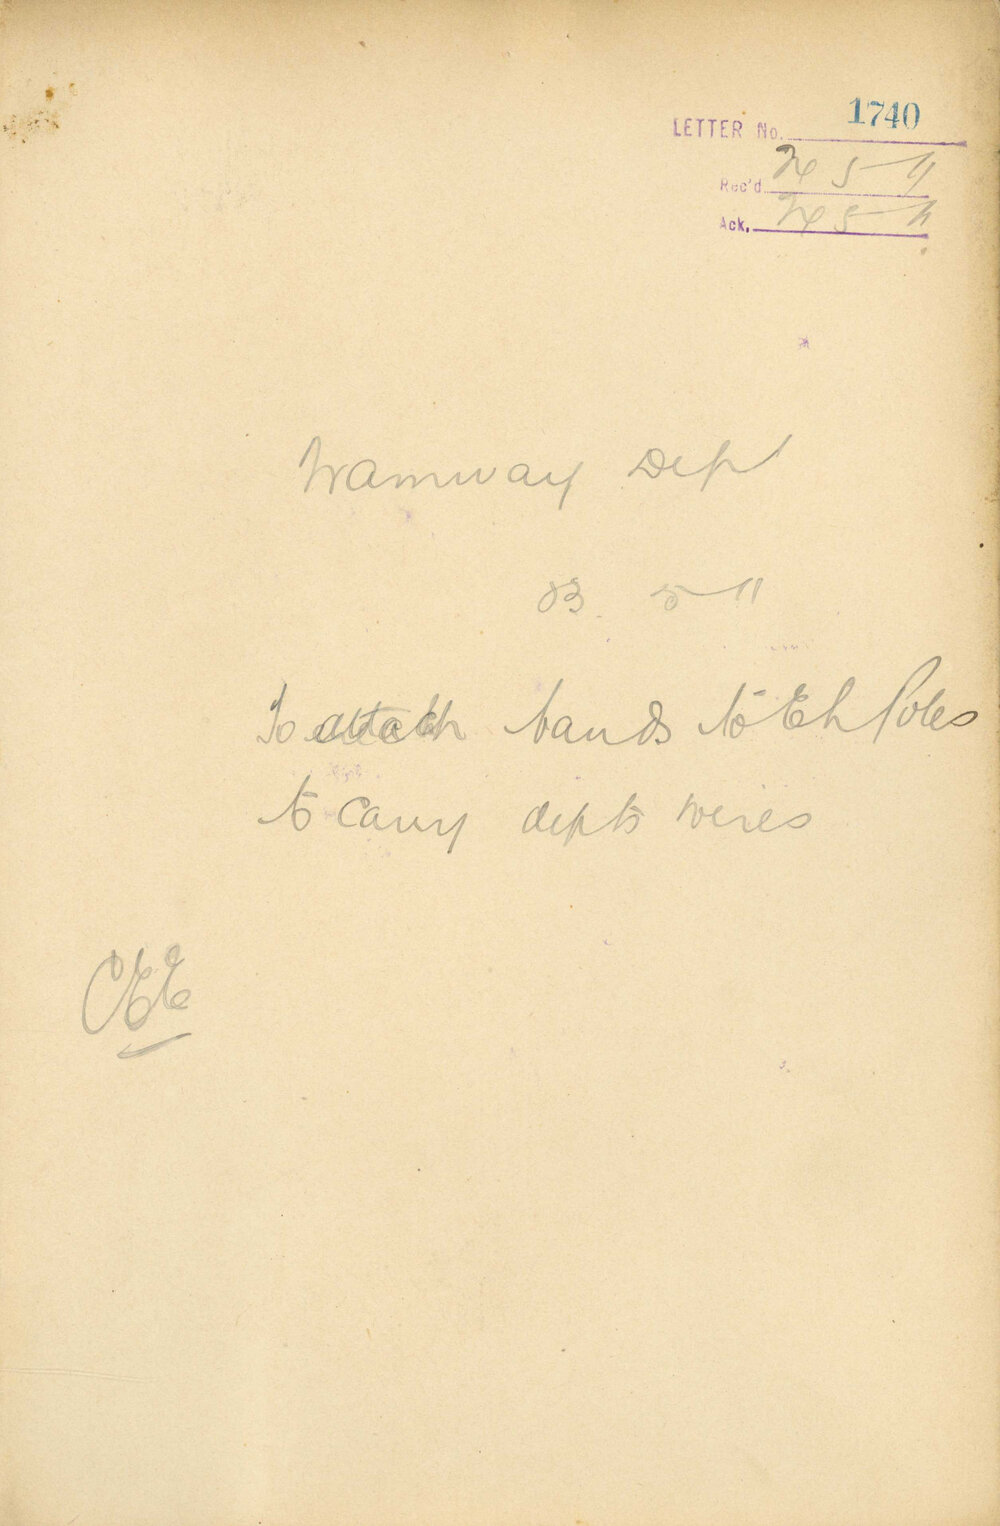 LETTER No. 1740
Rec'd 24 5 11
Ack. 24 5 11
Tramway Dept
23 5 11
To attach bands to E L Poles
to carry depts wires
CEE